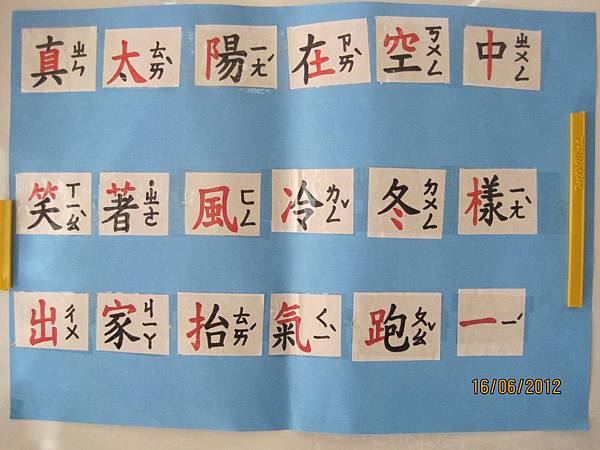 真ㄓㄣ 太ㄊㄞˋ 陽ㄧㄤˊ 在ㄗㄞˋ 空ㄎㄨㄥ 中ㄓㄨㄥ
笑ㄒㄧㄠˋ 著˙ㄓㄜ 風ㄈㄥ 冷ㄌㄥˇ 冬ㄉㄨㄥ 樣ㄧㄤˋ
出ㄔㄨ 家ㄐㄧㄚ 抬ㄊㄞˊ 氣ㄑㄧˋ 跑ㄆㄠˇ 一ㄧˊ
16/06/2012